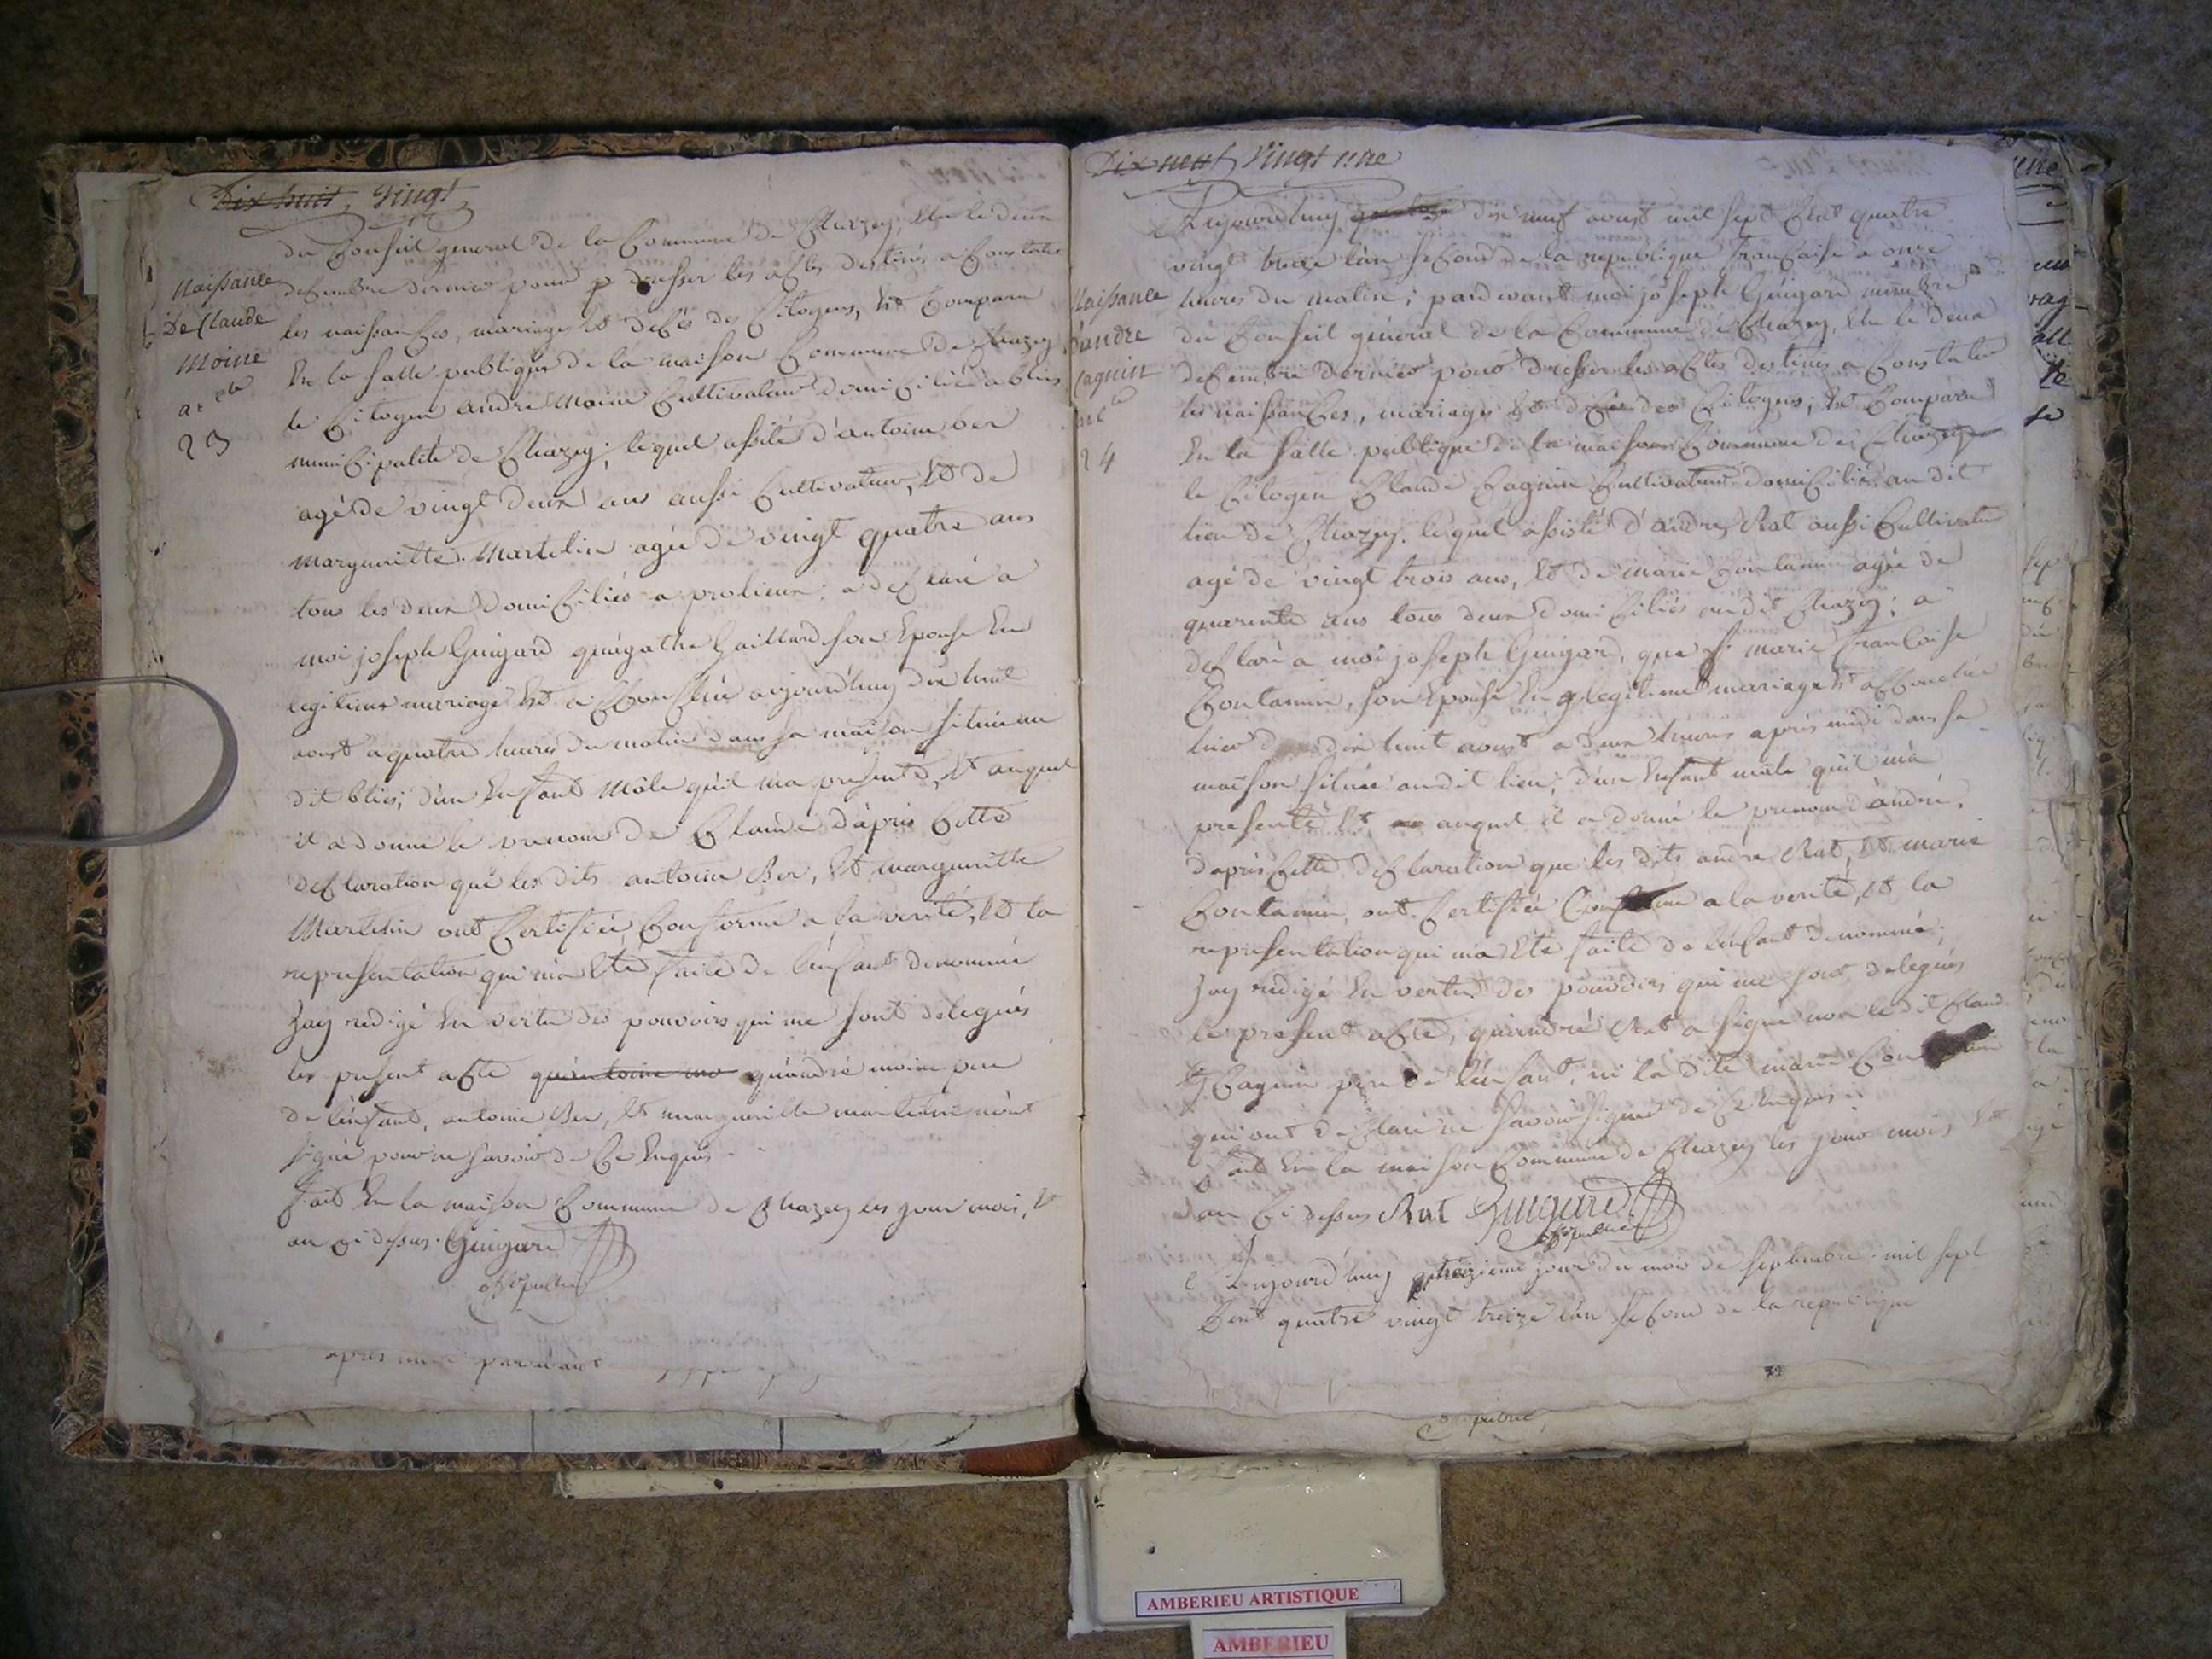 Dix huit, vingt
du Conseil general de la Commune de Chazey, Elu le deux
Naissance
decembre dernier pour dresser les actes destinés a Constater
De Claude
les naissances, mariages Et decés des Citoyens, Est Comparu
Moine
En la salle publique de la maison Commune de Chazey
le Citoyen andré Moine Cultivateur domicilié a blies
23
municipalité de Chazey; lequel assité d'antoine ber
agé de vingt deux ans aussi Cultivateur, Et de
margueritte Martelin agée de vingt quatre ans
tous les deux domiciliés a prolieux; a declaré a
moi joseph Guigard qu'agathe Gaillard son Epouse En
legitime mariage Est accouchée aujourd'huy dix huit
aoust a quatre heures du matin dans sa maison située au
dit blies; d'un Enfant Mâle qu'il m'a presenté, Et auquel
il a donné le prenom de Claude, d'apris Cette
declaration que les dits antoine Ber, Et margueritte
Martelin ont Certifiée Conforme a la verité, Et la
representation qui m'a Eté faite de l'enfant denommé
Jay redigé En vertu des pouvoirs qui me sont delegués
le present acte qu'antoine mo qu'andré moine pere
de l'enfant, antoine Ber, Et margueritte martelin n'ont
signé pour ne savoir de Ce Enquis
fait En la maison Commune de Chazey les jour mois, Et
an ci dessus. Guigard
off. public
apres midi pardevant
Dix neuf, Vingt une
Aujourd'huy dix neuf aoust mil sept Cent quatre
vingt treize l'an second de la republique francaise a onze
Naissance
heures du matin; pardevant moi joseph Guigard membre
d'andre
du Conseil general de la Commune de Chazey, Elu le deux
Cagnin
decembre dernier pour dresser les actes destinés a Constater
les naissances, mariages Et decés des Citoyens; Est Comparu
24
En la salle publique de la maison Commune de Chazey
le Citoyen Claude Cagnin Cultivateur domicilié au dit
lieu de Chazey. lequel assisté d'andre Rat aussi Cultivateur
agé de vingt trois ans, Et de marie Contamin agée de
quarente ans tous deux domiciliés au dit Chazey; a
declaré a moi joseph Guigard, que marie francoise
Contamin, son Epouse En legitime mariage Est accouchée
hier dix huit aoust a deux heures après midi dans sa
maison située au dit lieu; d'un Enfant mâle qu'il m'a
presenté Et auquel il a donné le prenom d'andré.
d'apris Cette declaration que les dits andre Rat, Et marie
Contamin, ont Certifiée Conforme a la verité, Et la
representation qui m'a Eté faite de l'enfant denommé;
Jay redigé En vertu des pouvoirs qui me sont delegués
le present acte, qu'andré Rat a signé non le dit Claude
Cagnin pere de l'enfant, ni la dite marie Contamin
qui ont declaré ne savoir signer de Ce Enquis.
fait En la maison Commune de Chazey les jour mois Et
an Ci dessus Rat Guigard
off. public
Aujourd'huy jour du mois de septembre mil sept
Cent quatre vingt treize l'an second de la republique
public
AMBERIEU ARTISTIQUE
AMBERIEU